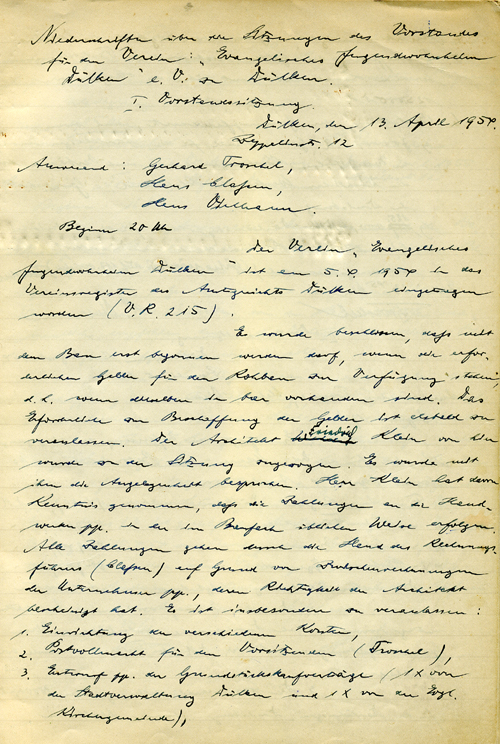 Niederschriften über die Sitzungen des Vorstandes
für den Verein: „Evangelisches Jugendwohnheim
Dülken" e. V. in Dülken.
I. Vorstandssitzung.
Dülken, den 13. April 1954
12
Anwesend: Gerhard Troschel,
Hans Clahsen,
Hans
Beginn 20 Uhr
Der Verein „Evangelisches
Jugendwohnheim Dülken" ist am 5. 4. 1954 in das
Vereinsregister des Amtsgerichts Dülken eingetragen
worden (V. R. 215).
Es wurde beschlossen, daß mit
dem Bau erst begonnen werden darf, wenn die erfor-
derlichen Gelder für den Rohbau zur Verfügung stehen
d. h. wenn dieselben in bar vorhanden sind. Das
Erforderliche zur Beschaffung der Gelder ist alsbald zu
veranlassen. Der Architekt Friedrich Klein von hier
wurde zu der Sitzung zugezogen. Es wurde mit
ihm die Angelegenheit besprochen. Herr Klein hat davon
Kenntnis genommen, daß die Zahlungen an die Hand-
werker pp. in der im Baufach üblichen Weise erfolgen.
Alle Zahlungen gehen durch die Hand des Rechnungs-
führers (Clahsen) auf Grund von
der Unternehmer pp., deren Richtigkeit der Architekt
bescheinigt hat. Es ist insbesondere zu veranlassen:
1. Einrichtung der verschiedenen Konten,
2. Postvollmacht für den Vorsitzenden (Troschel),
3. Entwurf pp. der Grundstückskaufverträge (1 X von
der Stadtverwaltung Dülken und 1 X von der Evgl.
Kirchengemeinde),